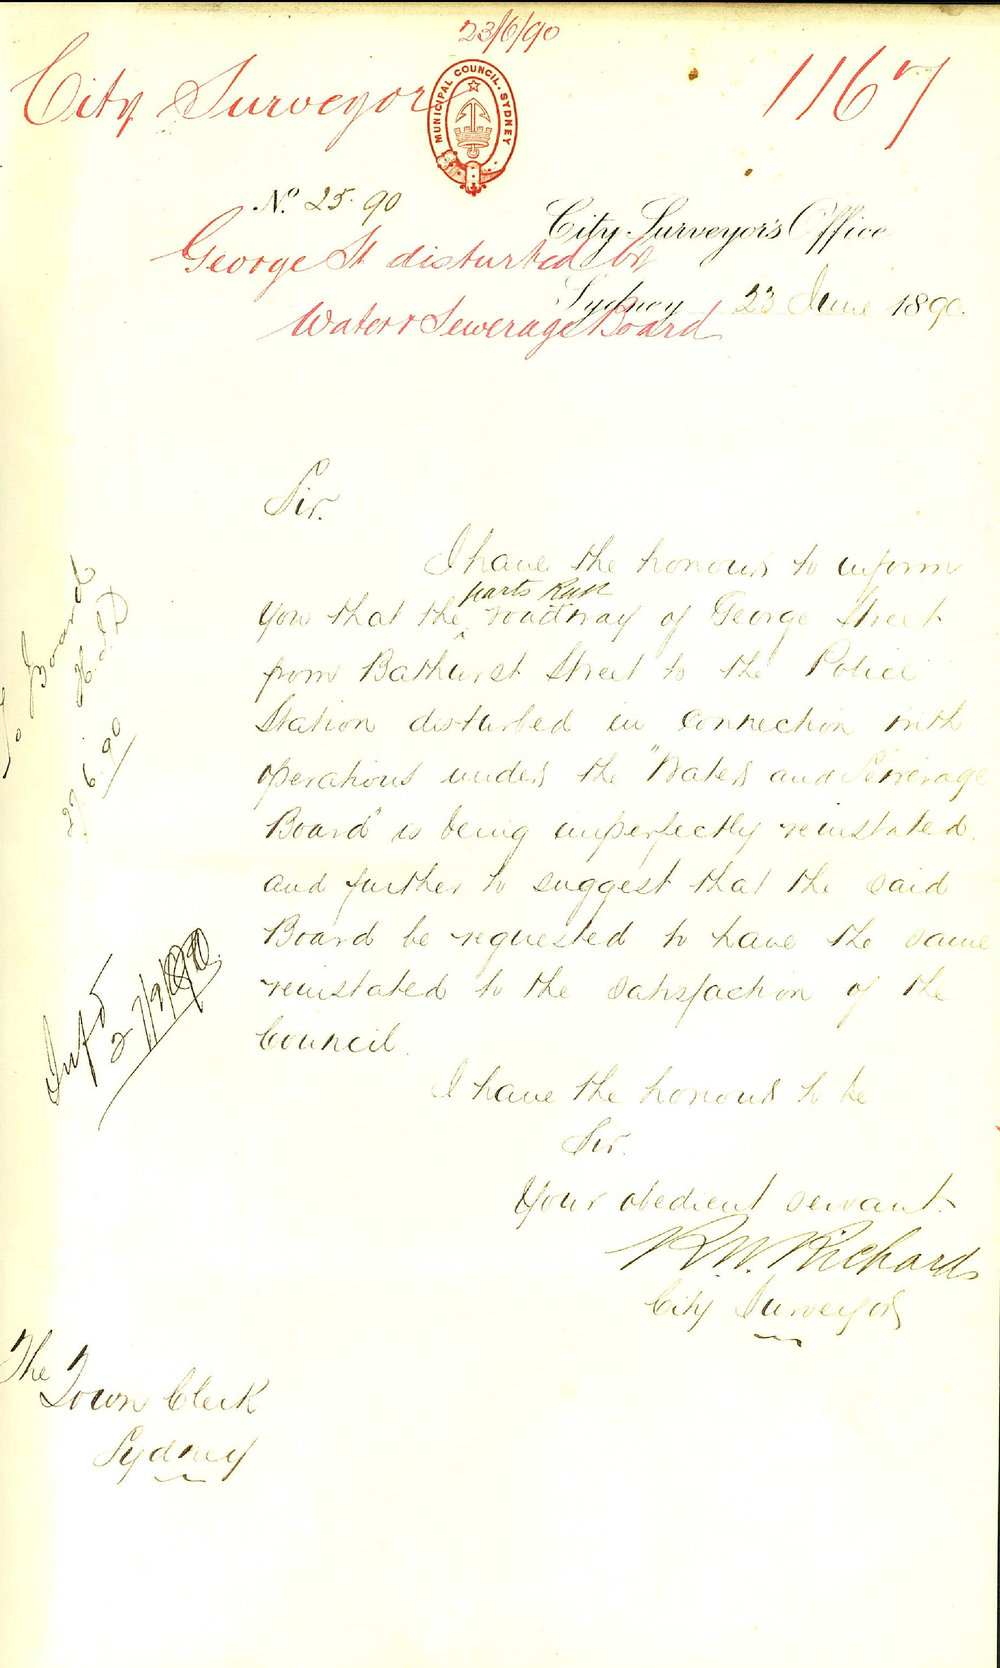 23/6/90
City Surveyor
1167
MUNICIPAL COUNCIL. SYDNEY
No. 25.90
City Surveyor's Office
George St disturbed by
Sydney 23 June 1890.
Water & Sewerage Board
Sir.
I have the honour to inform
parts
you that the roadway of George Street
from Bathurst Street to the Police
Station disturbed in connection with
operations under the "Water and Sewerage
Board" is being imperfectly reinstated.
and further to suggest that the said
Board be requested to have the same
reinstated to the satisfaction of the
Council.
I have the honour to be
Sir.
Your obedient servant.
R.W. Richards
City Surveyor
The
Town Clerk
Sydney
To Board
27.6.90
Infd